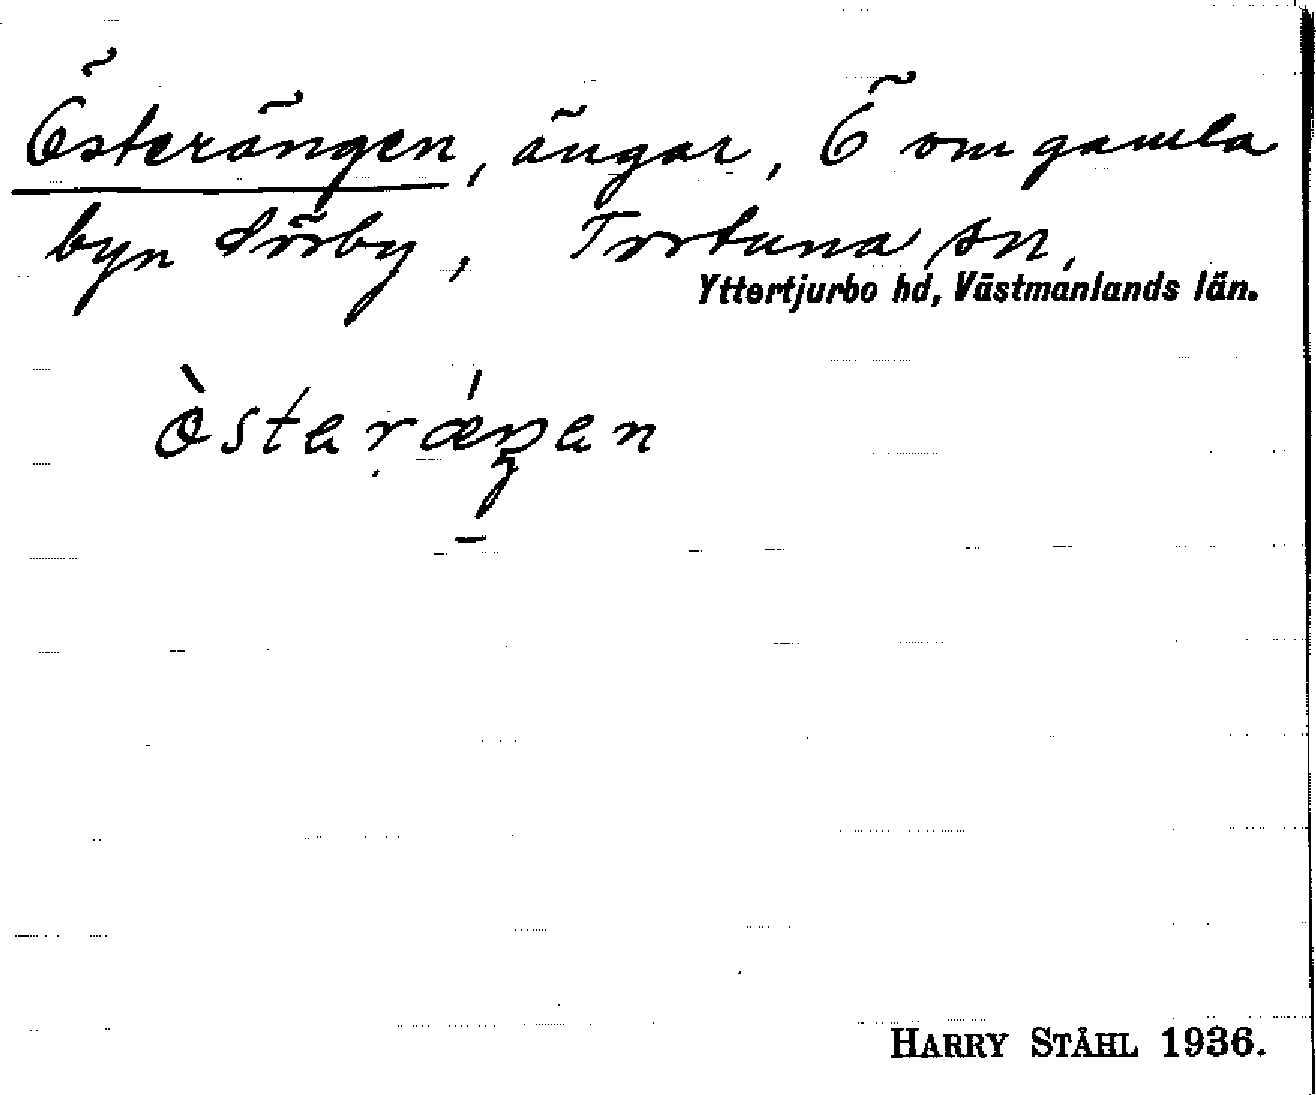 Österängen, ängar, Ö om gamla
byn Sörby, Tortuna sn,
Yttertjurbo hd, Västmanlands län.
HARRY STÅHL 1936.